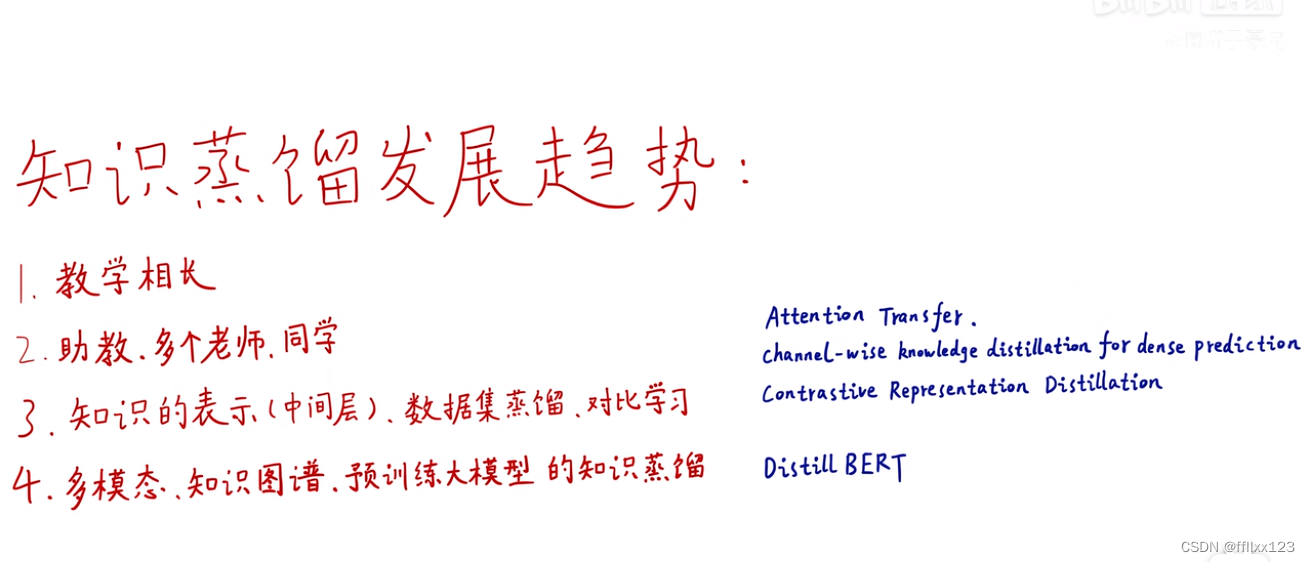 知识蒸馏发展趋势：
1. 教学相长
2. 助教、多个老师、同学
3. 知识的表示（中间层）、数据集蒸馏、对比学习
4. 多模态、知识图谱、预训练大模型 的知识蒸馏
Attention Transfer.
Channel-wise knowledge distillation for dense prediction
Contrastive Representation Distillation
Distill BERT
CSDN @ffllxx123